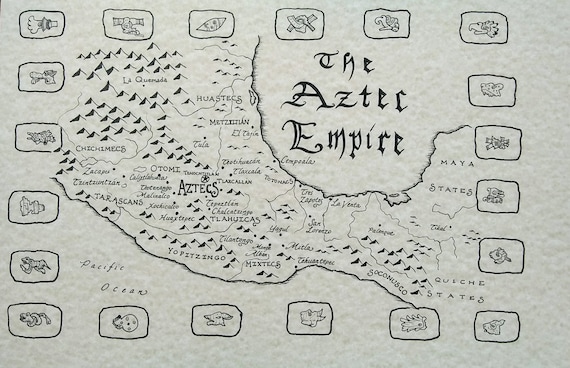 The
Aztec
Empire
La Quemada
HUASTECS
METZTITLAN
El Tajin
Tula
CHICHIMECS
Teotihuacán
Cempoala
OTOMI
TENOCHTITLAN
Tlaxcala
TLAXCALAN
TOTONACS
Zacapu
Tzintzuntzan
Calixtlahuaca
Tenanango
Malinalco
AZTECS
TARASCANS
Xochicalco
Tepeztlan
Chalcatzongo
Huaxtepec
TLAHUICAS
Tres
Zapotes
La Venta
San
Lorenzo
MAYA
STATES
Tikal
Palenque
Yagul
Tilantongo
Monte
Alban
Mitla
YOPITZINGO
MIXTECS
Tehuantepec
SOCONUSCO
QUICHE
STATES
Pacific
Ocean